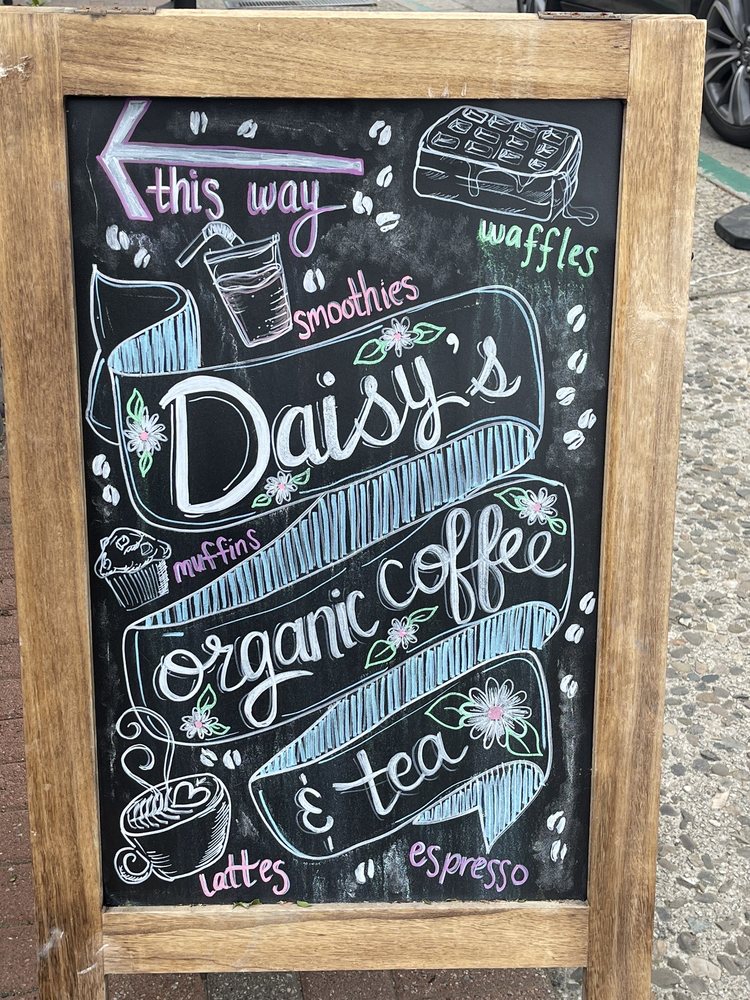 this way
waffles
smoothies
Daisy's
muffins
organic coffee
& tea
lattes
espresso